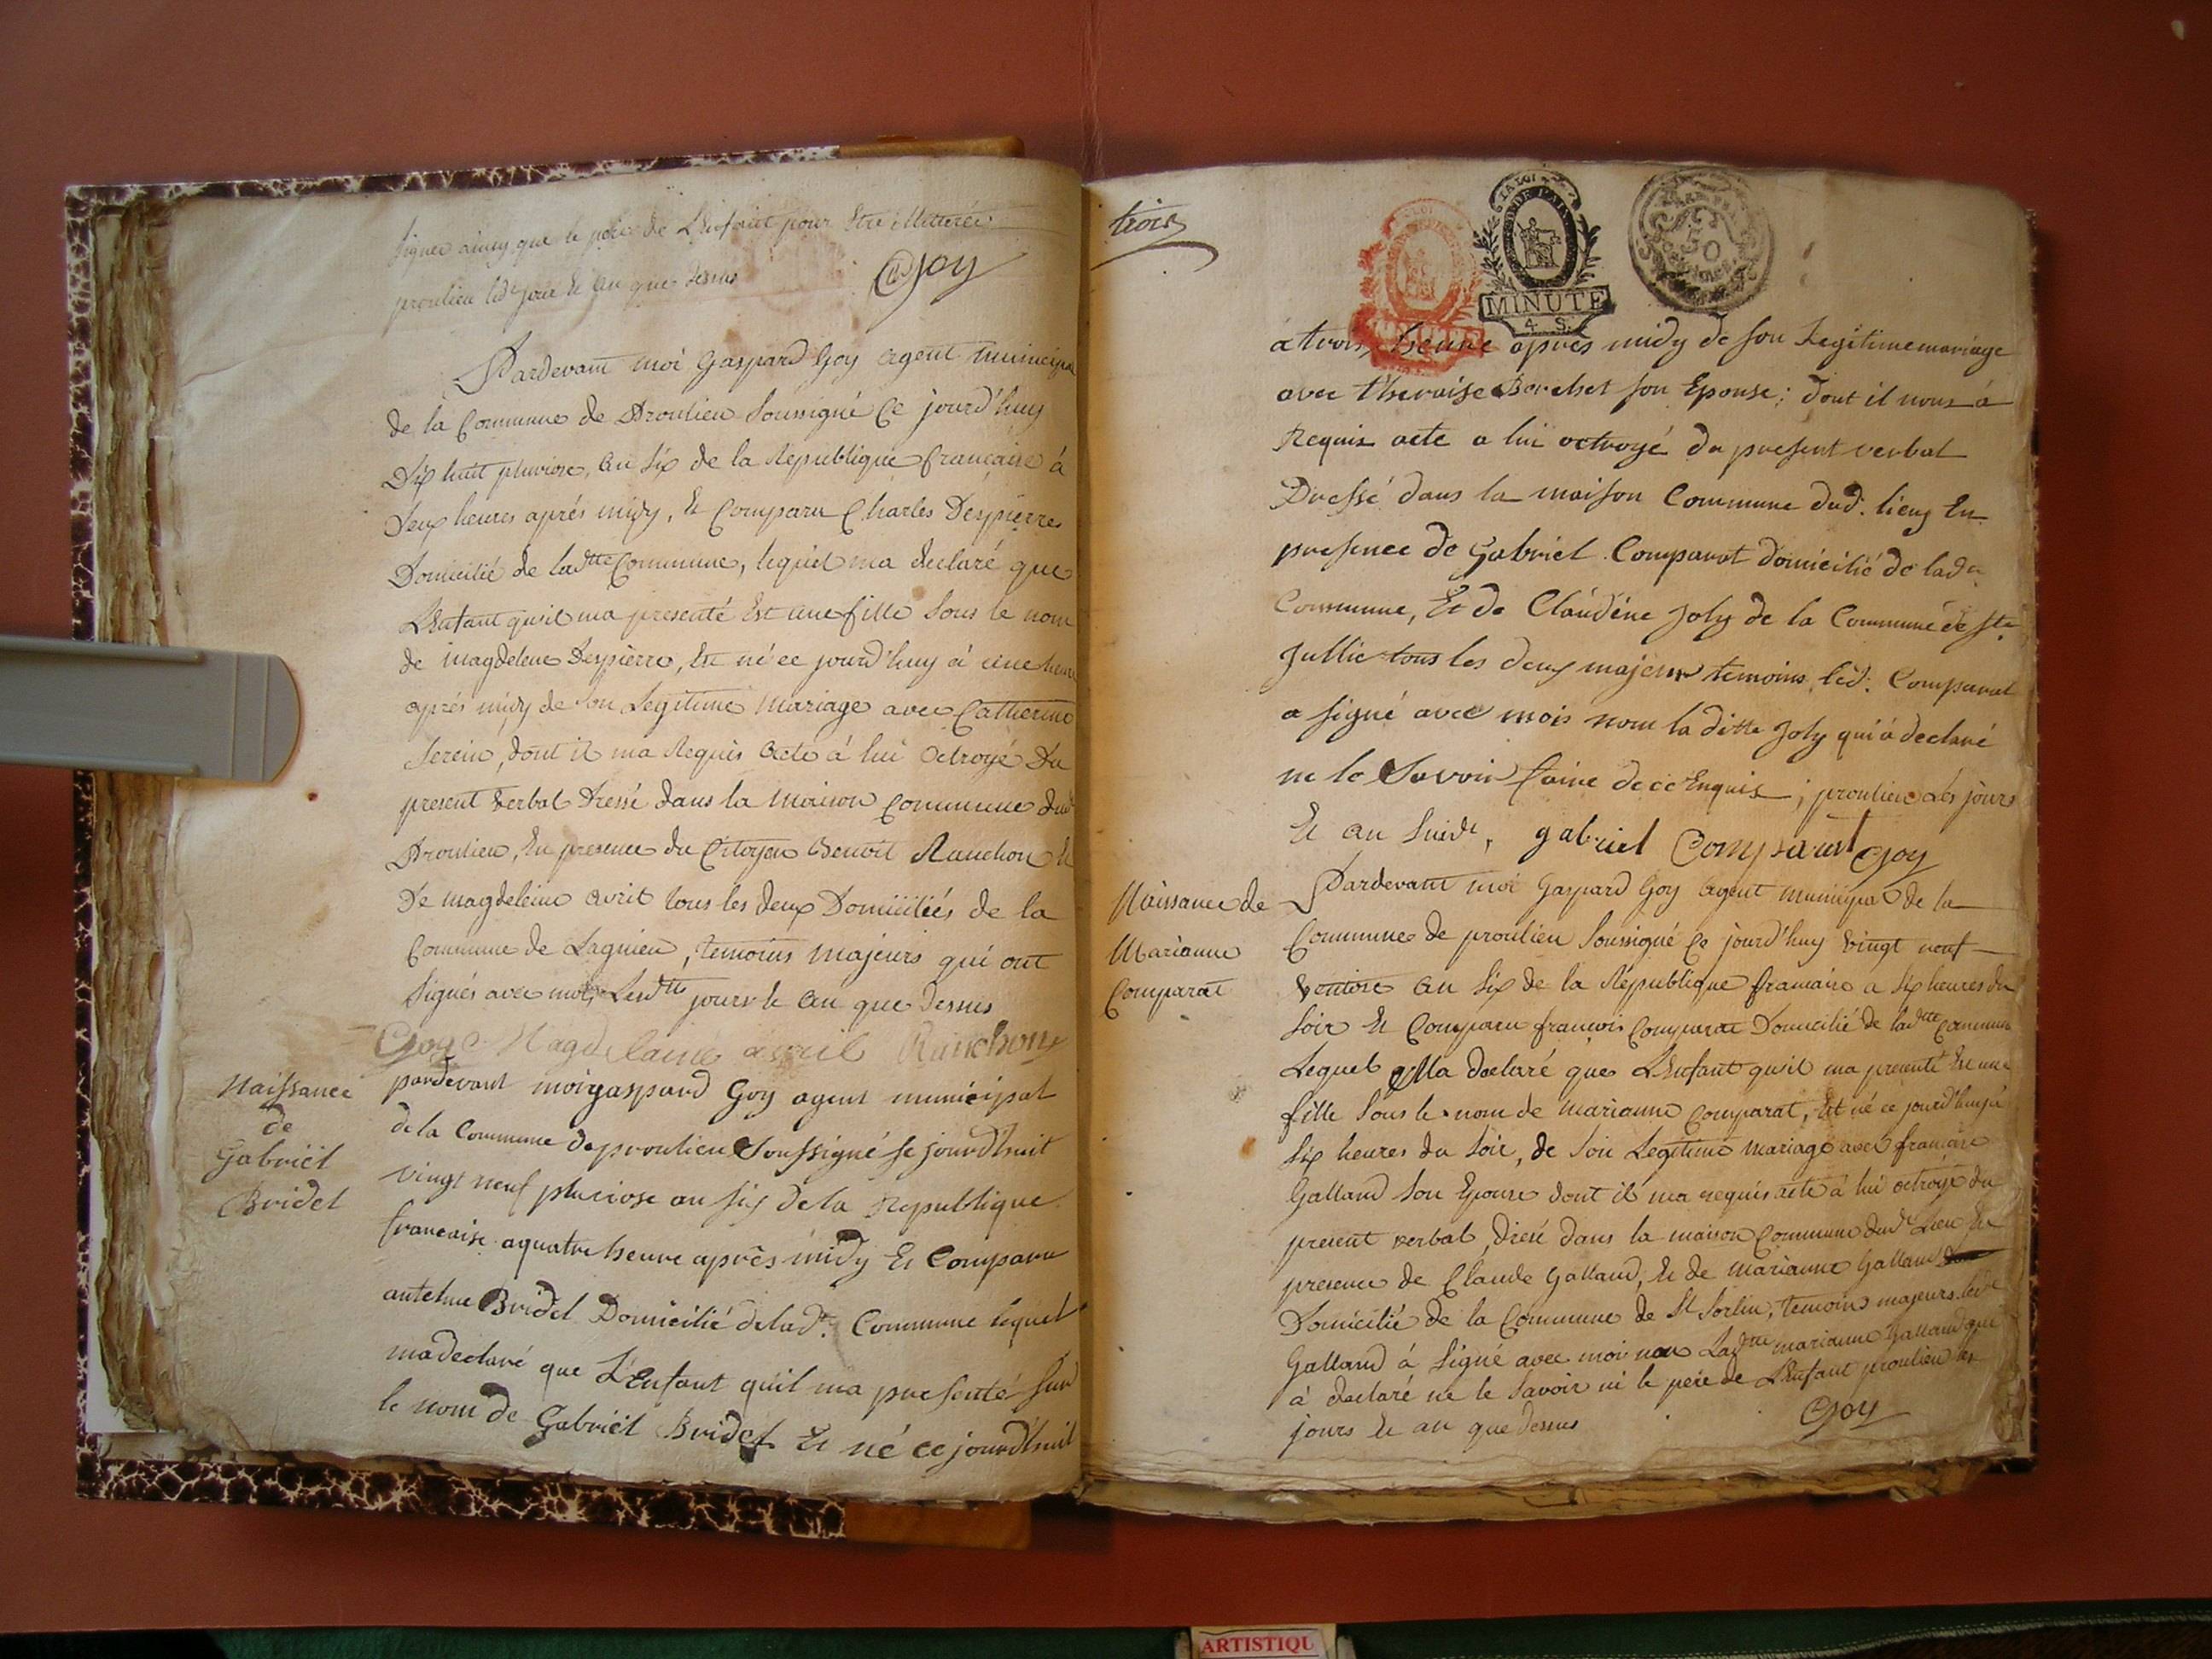 signer ainsy que le père de L'enfant pour Etre illitérée
proulieu lesd. jour Et an que dessus Goy
Pardevant moi Gaspard Goy agent municipal
de la Commune de Proulieu Soussigné Ce jourd'huy
Dix huit pluviose, an six de la Republique française à
deux heures aprés midy, Et Comparu Charles Despierre
Domicilié de ladtte Commune, lequel ma declaré que
L'Enfant qu'il ma presenté Est une fille Sous le nom
de Magdeleine Despierre, Est né ce jourd'huy à une heure
aprés midy de son Legitime Mariage avec Catherine
Serein, dont il ma Requis Acte à lui Octroyé Du
present Verbal Dressé dans la Maison Commune dud
Proulieu, En presence du Citoyen Benoit Ranchon Et
De Magdeleine avril tous les deux Domiciliés de la
Commune de Lagnieu, temoins Majeurs qui ont
Signés avec moi, Lesdtts jours Et an que Dessus
Goy Magdelaine avril Ranchon
Naissance
de
Gabriel
Bridel
pardevant moi gaspard Goy agent municipal
de la Commune de proulieu Soussigné se jourd'huit
vingt neuf pluviose an six de la Republique
francaise a quatre heure après midy Et Comparu
antelme Bridel Domicilié de lad. Commune lequel
ma declaré que L'Enfant quil ma presenté sur
le nom de Gabriel Bridel Et né ce jourd'huit
trois
LA LOI
MINUTE
4. S.
50
a trois heure aprés midy de son Legitime mariage
avec theraise Borchet son Epouse; dont il nous à
Requis acte a lui octroyé du present verbal
Dressé dans la maison Commune dud. lieuy En
presence de Gabriel Comparat domicilié de ladte
Commune, Et de Claudéne Joly de la Commune de Ste
Jullie tous les deux majeur temoins led. Comparat
a signé avec mois nom la ditte Joly qui à declaré
ne le Savoir faire de ce Enquis; proulieu Les jours
Et an Susdt, gabriel Comparat Goy
Naissance de
Marianne
Comparat
Pardevant moi Gaspard Goy agent municipal de la
Commune de proulieu Soussigné Ce jourd'huy Vingt neuf
Ventose an Six de la République française a six heures du
Soir Et Comparu françois Comparat Domicilié de ladtte Commune
Lequel Ma declaré que L'Enfant qu'il ma presenté Est une
fille Sous le nom de Marianne Comparat, Est né ce jourd'huy à
Six heures du Soir, de Son Legitime Mariage avec françoise
Galland Son Epouse dont il ma requis acte à lui octroyé du
present verbal, dressé dans la maison Commune dudt Lieu En
presence de Claude Galland, Et de Marianne Galland
Domicilié de la Commune de St Sorlin, temoins majeurs ledt
Galland à Signé avec moi non Ladtte Marianne Galland qui
à declaré ne le Savoir ni le père de L'Enfant proulieu les
jours Et an que Dessus Goy
ARTISTIQU